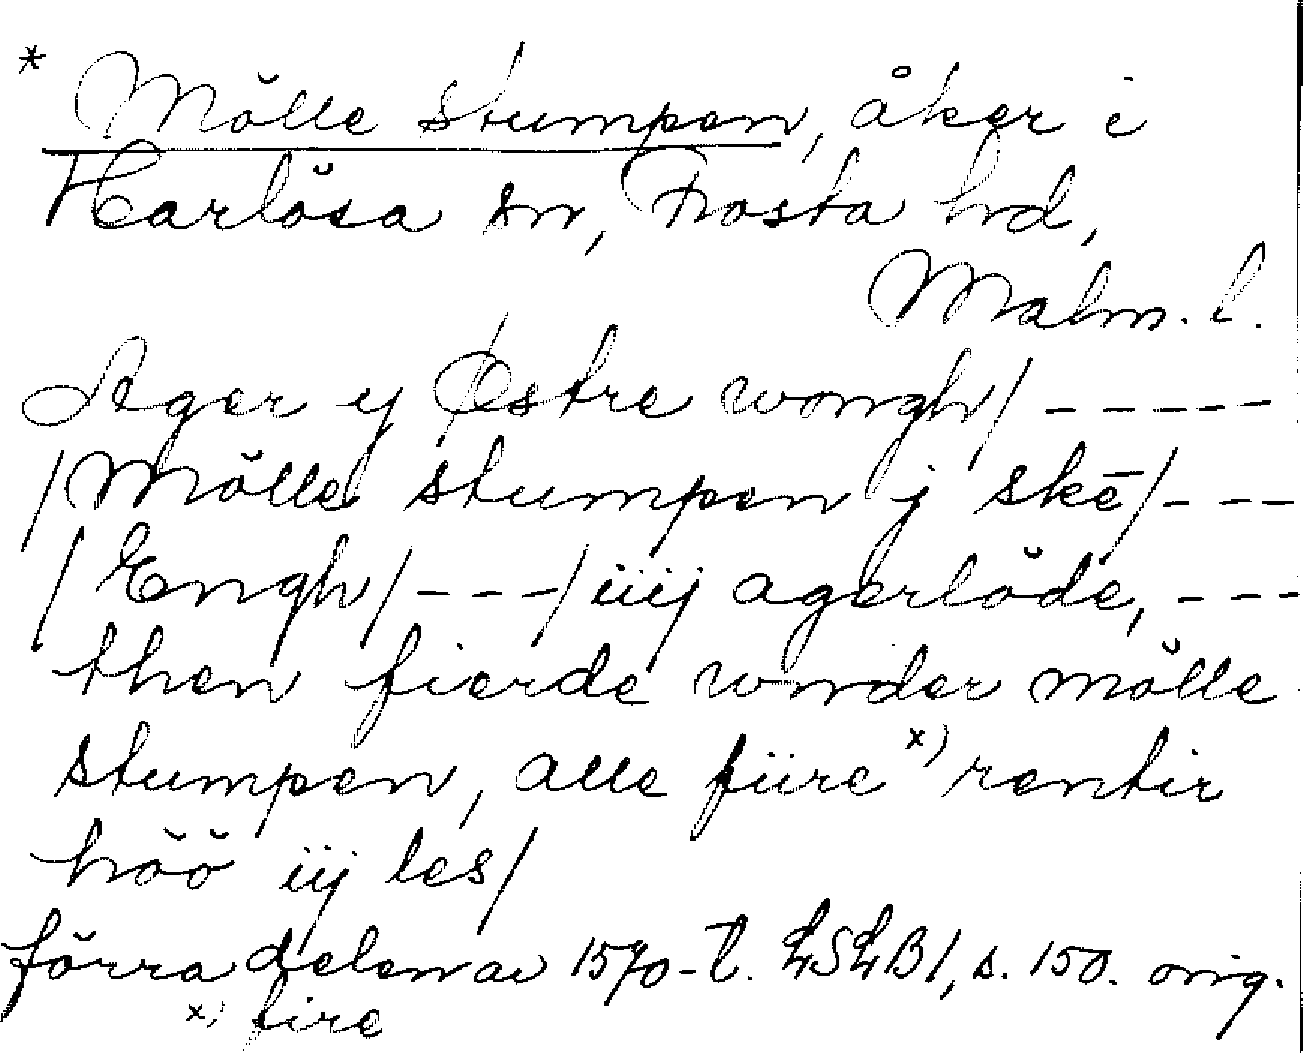 * Mölle stumpen, åker i
Harlösa sn, Frosta hd,
Malm. l.
Ager y Østre wongh/ -----
/Mölle stumpen j ske̅/ ---
/Engh/ ---/ iiij agerlöde, ---
then fierde wnder mölle
stumpen, alle fiire x) rentir
höö iij les/
förra delen av 1570-t. LSLB 1, s. 150. orig.
x) fire